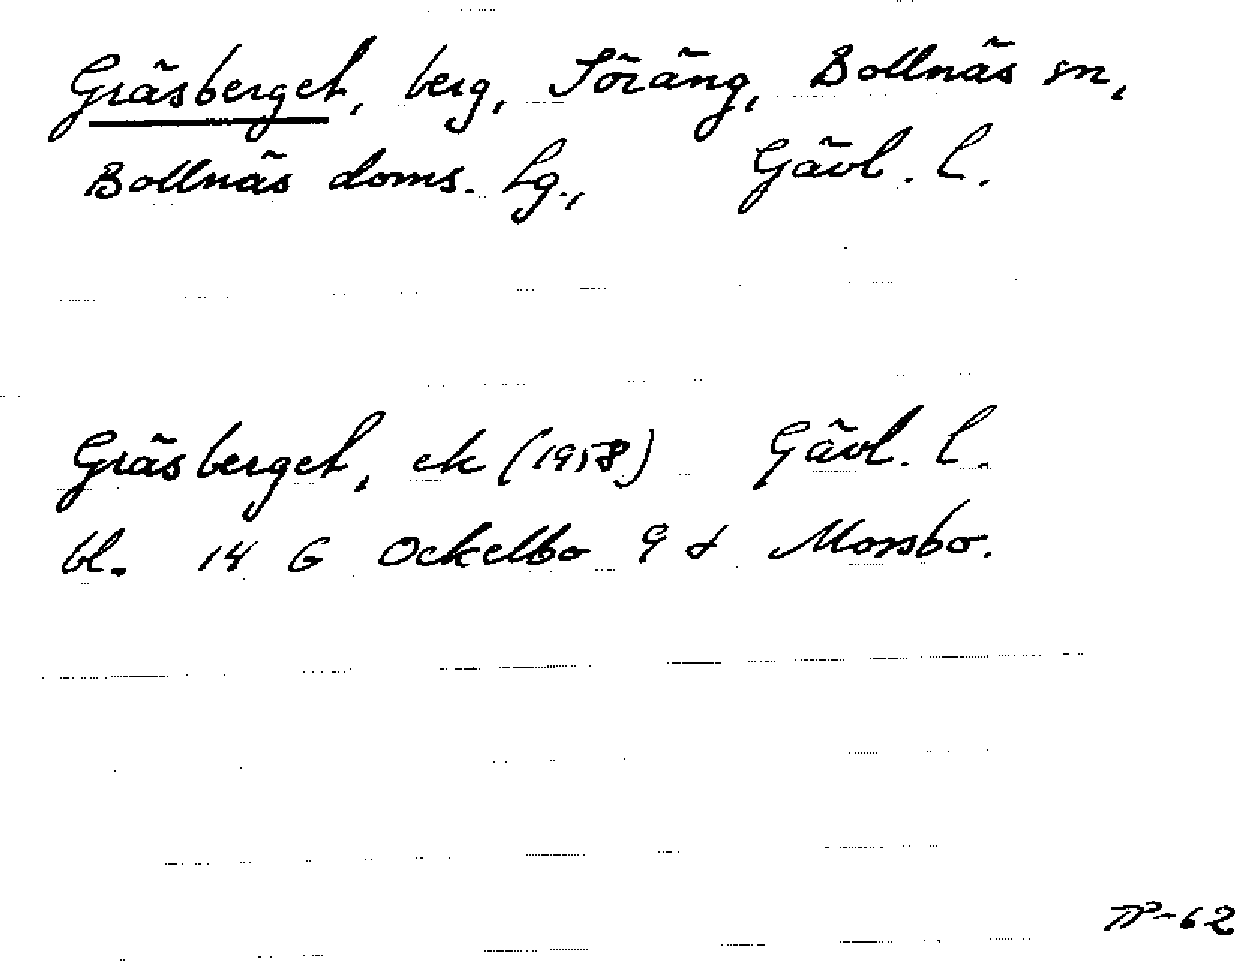 Gräsberget, berg, Söräng, Bollnäs sn,
Bollnäs doms. lg., Gävl. l.
Gräsberget, ek (1958) Gävl. l.
bl. 14 G Ockelbo 9 d Morsbo.
TP-62